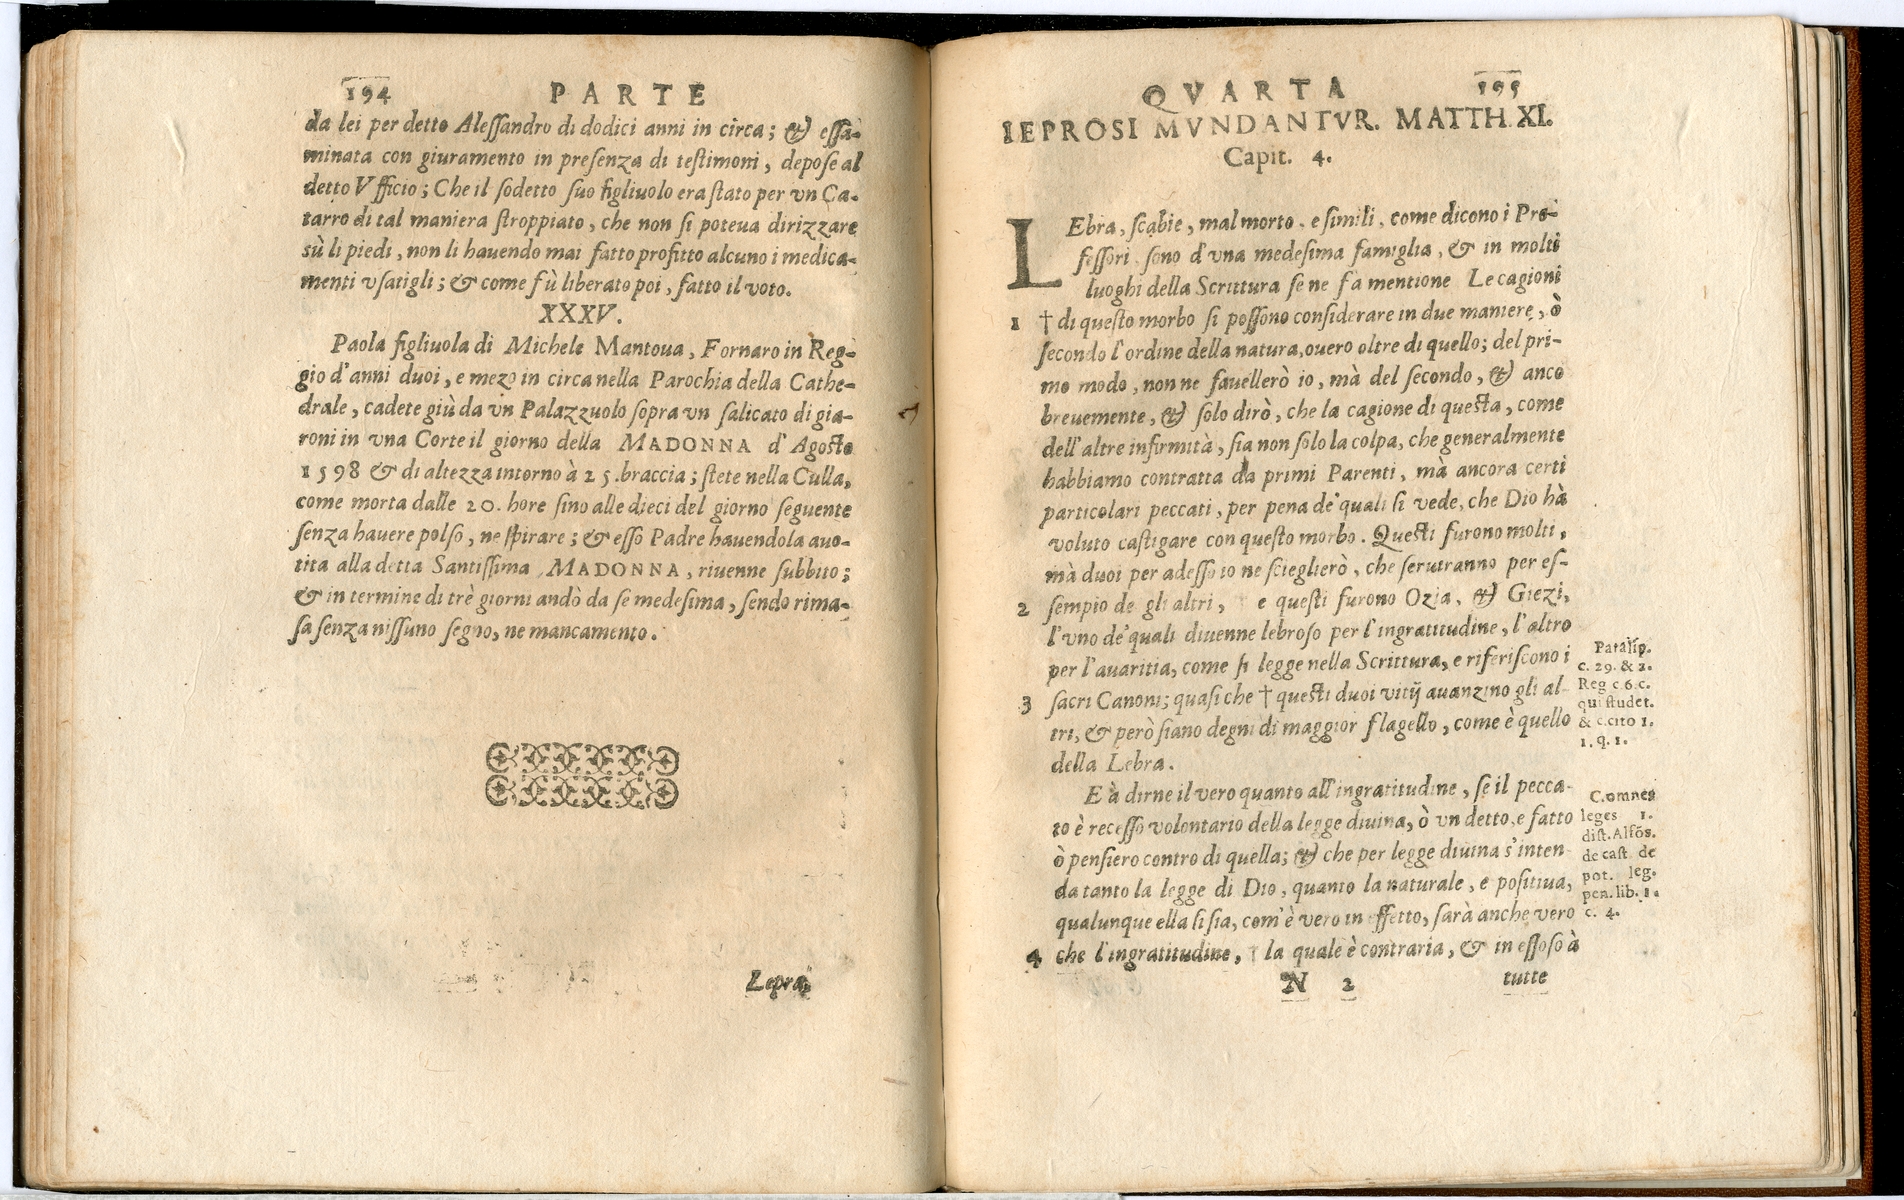 194 PARTE
da lei per detto Alessandro di dodici anni in circa; & essa-
minata con giuramento in presenza di testimoni, depose al
detto Vfficio; Che il sodetto suo figliuolo era stato per vn Ca-
tarro di tal maniera stroppiato, che non si poteua dirizzare
sù li piedi, non li hauendo mai fatto profitto alcuno i medica-
menti vsatigli; & come fù liberato poi, fatto il voto.
XXXV.
Paola figliuola di Michele Mantoua, Fornaro in Reg-
gio d'anni duoi, e mezo in circa nella Parochia della Cathe-
drale, cadete giù da vn Palazzuolo sopra vn salicato di gia-
roni in vna Corte il giorno della MADONNA d'Agosto
1598 & di altezza intorno à 25. braccia; stete nella Culla,
come morta dalle 20. hore sino alle dieci del giorno seguente
senza hauere polso, ne spirare; & esso Padre hauendola auo-
tita alla detta Santissima MADONNA, riuenne subbito;
& in termine di trè giorni andò da se medesima, sendo rima-
sa senza nissuno segno, ne mancamento.
Lepra,
QVARTA 195
LEPROSI MVNDANTVR. MATTH. XI.
Capit. 4.
LEbra, scabie, mal morto, e simili, come dicono i Pro-
fessori, sono d'vna medesima famiglia, & in molti
luoghi della Scrittura se ne fa mentione Le cagioni
1 † di questo morbo si possono considerare in due maniere, ò
secondo l'ordine della natura, ouero oltre di quello; del pri-
mo modo, non ne fauellerò io, mà del secondo, & anco
breuemente, & solo dirò, che la cagione di questa, come
dell'altre infirmità, sia non solo la colpa, che generalmente
habbiamo contratta da primi Parenti, mà ancora certi
particolari peccati, per pena de'quali si vede, che Dio hà
voluto castigare con questo morbo. Questi furono molti,
mà duoi per adesso io ne scieglierò, che seruiranno per es-
2 sempio de gli altri, e questi furono Ozia, & Giezi,
l'vno de'quali diuenne lebroso per l'ingratitudine, l'altro
per l'auaritia, come si legge nella Scrittura, e riferiscono i
3 sacri Canoni; quasi che † questi duoi vitij auanzino gli al-
tri, & però siano degni di maggior flagello, come è quello
della Lebra.
Paralip.
c. 29. & 2.
Reg c. 6. c.
qui studet.
& c. cito 1.
1. q. 1.
E à dirne il vero quanto all'ingratitudine, se il pecca-
to è recesso volontario della legge diuina, ò vn detto, e fatto
ò pensiero contro di quella; & che per legge diuina s'inten
da tanto la legge di Dio, quanto la naturale, e positiua,
qualunque ella si sia, com'è vero in effetto, sarà anche vero
4 che l'ingratitudine, † la quale è contraria, & in essoso à
C. omnes
leges 1.
dist. Alfõs.
de cast. de
pot. leg.
pen. lib. 1.
c. 4.
N 2 tutte